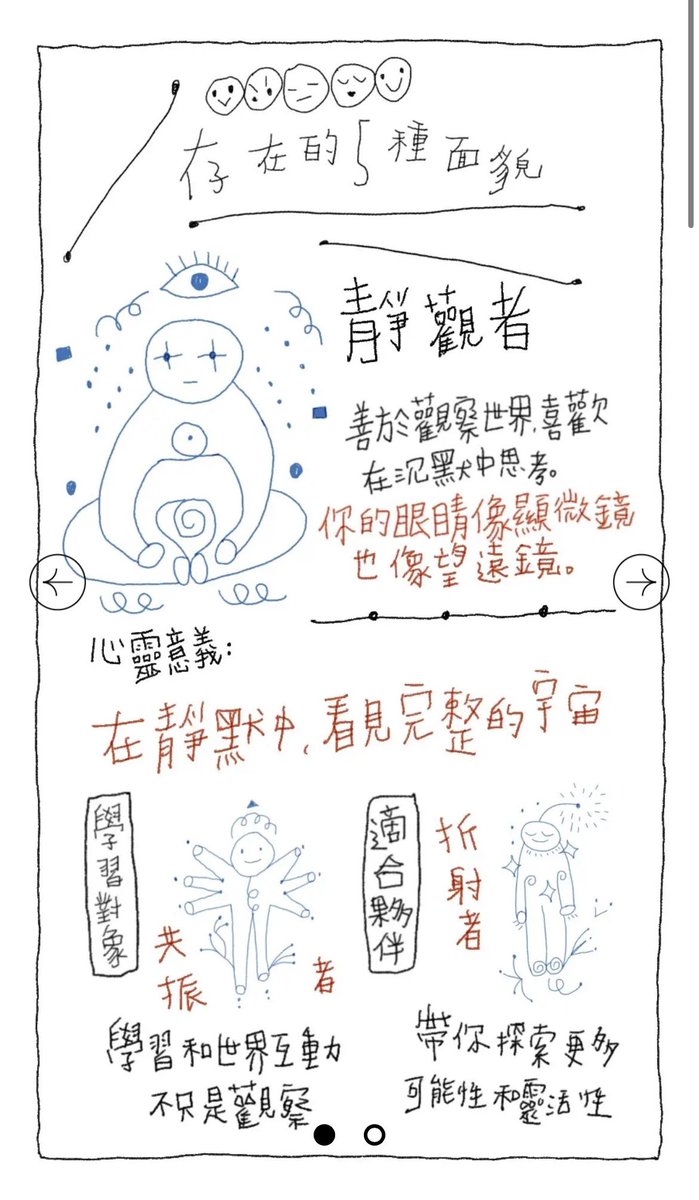 存在的5種面貌
靜觀者
善於觀察世界,喜歡
在沉默中思考。
你的眼睛像顯微鏡
也像望遠鏡。
心靈意義:
在靜默中,看見完整的宇宙
學習對象
共振者
學習和世界互動
不只是觀察
適合夥伴
折射者
帶你探索更多
可能性和靈活性